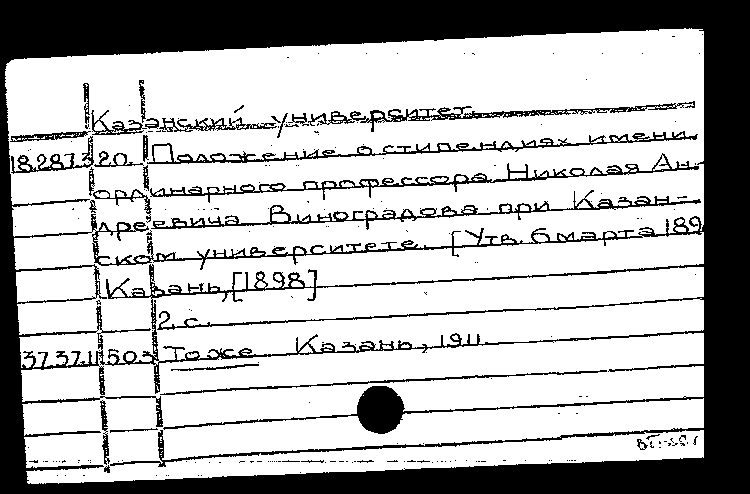 Казанский университет.
18.287.3.20. Положение о стипендиях имени
ординарного профессора Николая Ан-
дреевича Виноградова при Казан-
ском университете. [Утв. 6 марта 189
Казань, [1898]
2 с.
37.37.11.503 Тоже Казань, 1911.